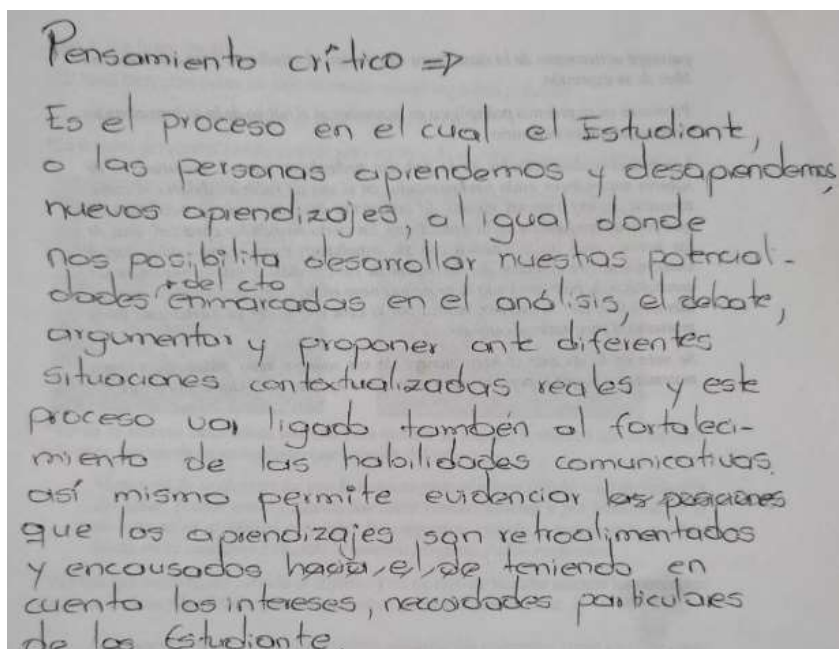 Pensamiento crítico =>
Es el proceso en el cual el Estudiante,
o las personas aprendemos y desaprendemos,
nuevos aprendizajes, al igual donde
nos posibilita desarrollar nuestras potencial-
dades + del cto enmarcadas en el análisis, el debate,
argumentar y proponer ante diferentes
situaciones contextualizadas reales y este
proceso va ligado también al fortaleci-
miento de las habilidades comunicativas.
así mismo permite evidenciar las posiciones
que los aprendizajes son retroalimentados
y encausados hacia el de teniendo en
cuenta los intereses, necesidades particulares
de los Estudiante.